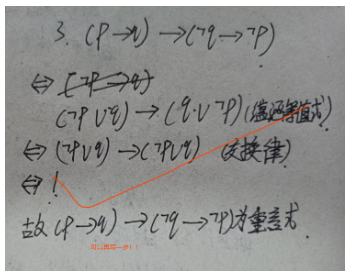 3. (p→q)→(¬q→¬p)
⇔ (¬p→q)
(¬p∨q)→(q∨¬p) (蕴涵等值式)
⇔ (¬p∨q)→(¬p∨q) (交换律)
⇔ 1
故(p→q)→(¬q→¬p)为重言式
可以再写一步!!